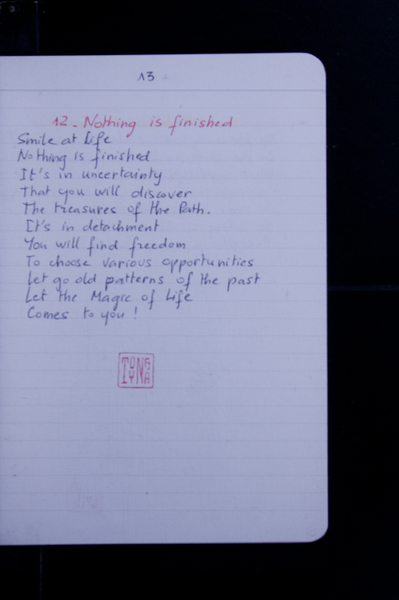 13
12. Nothing is finished
Smile at Life
Nothing is finished
It's in uncertainty
That you will discover
The treasures of the Path.
It's in detachment
You will find freedom
To choose various opportunities
Let go old patterns of the past
Let the Magic of Life
Comes to you !